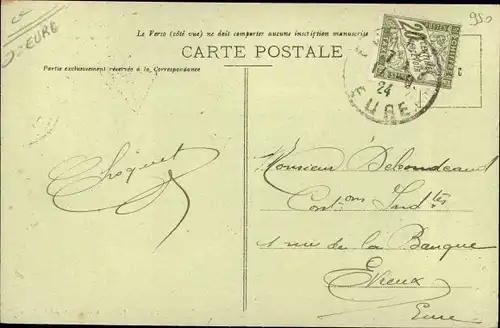 EURE
950
Le Verso (côté vue) ne doit comporter aucune inscription manuscrite
CARTE POSTALE
Partie exclusivement réservée à la Correspondance
20
24
EURE
Choquet
Monsieur
Cont.ons Ind.tes
1 rue de la Banque
Evreux
Eure